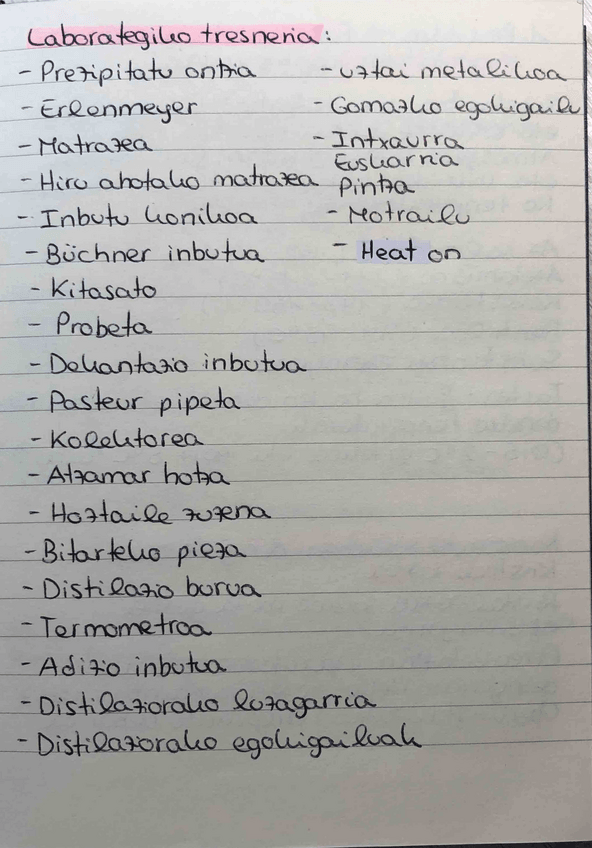 Laborategiko tresneria:
- Prezipitatu ontzia
- Erlenmeyer
- Matrazea
- Hiru ahotako matrazea
- Inbutu konikoa
- Büchner inbutua
- Kitasato
- Probeta
- Dekantazio inbutua
- Pasteur pipeta
- Kolektorea
- Atzamar hotza
- Hoztaile zuzena
- Bitarteko pieza
- Distilazio burua
- Termometroa
- Adizio inbutua
- Distilaziorako luzagarria
- Distilaziorako egokigailuak
- uztai metalikoa
- Gomazko egokigailu
- Intxaurra
Euskarria
Pintza
- Motrailu
- Heat on